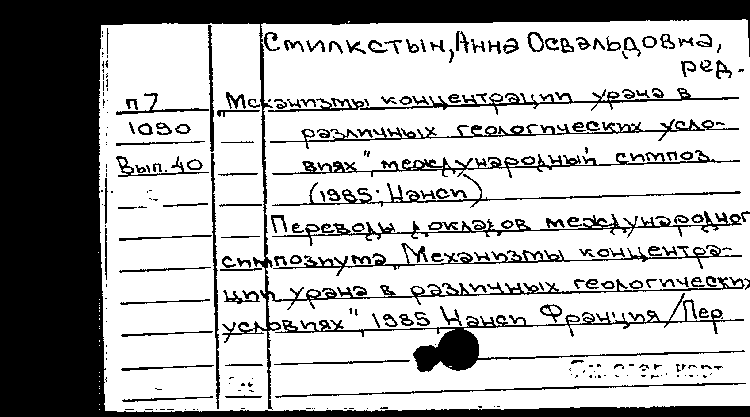 Смилкстын, Анна Освальдовна,
ред.
п7
1090
Вып. 40
"Механизмы концентрации урана в
различных геологических усло-
виях", международный симпоз.
(1985; Нанси)
Переводы докладов международног
симпозиума "Механизмы концентра-
ции урана в различных геологических
условиях", 1985, Нанси Франция / Пер
См. след. карт